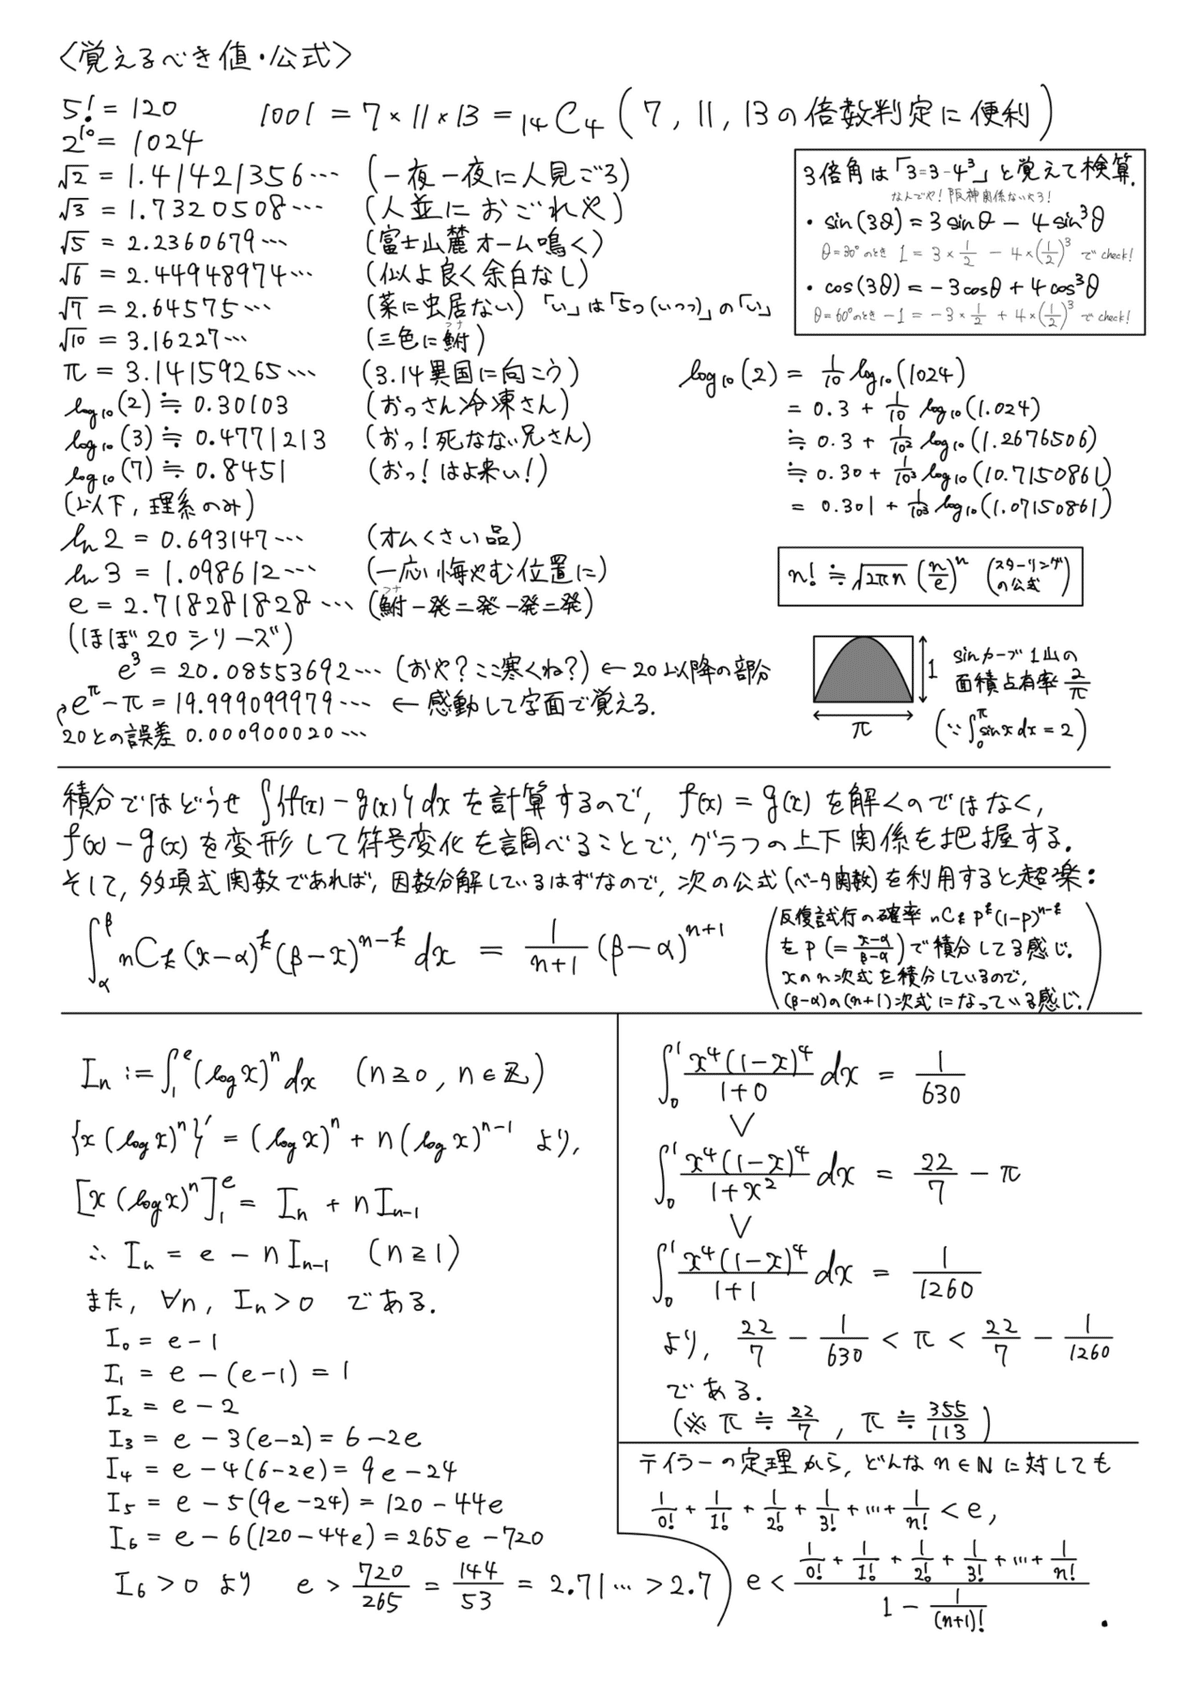 〈覚えるべき値・公式〉
5! = 120
1001 = 7×11×13 = ₁₄C₄ (7, 11, 13の倍数判定に便利)
2¹⁰ = 1024
√2 = 1.41421356… (一夜一夜に人見ごろ)
√3 = 1.7320508… (人並におごれや)
√5 = 2.2360679… (富士山麓オーム鳴く)
√6 = 2.44948974… (似よ良く余白なし)
√7 = 2.64575… (菜に虫居ない) 「い」は「5つ(いつつ)」の「い」
√10 = 3.16227… (三色に鮒(フナ))
π = 3.14159265… (3.14異国に向こう)
log₁₀(2) ≒ 0.30103 (おっさん冷凍さん)
log₁₀(3) ≒ 0.4771213 (おっ!死なない兄さん)
log₁₀(7) ≒ 0.8451 (おっ! はよ来い!)
(以下, 理系のみ)
ln 2 = 0.693147… (オムくさい品)
ln 3 = 1.098612… (一応悔やむ位置に)
e = 2.718281828… (鮒(フナ)一発二発一発二発)
(ほぼ20シリーズ)
e³ = 20.08553692… (おや?ここ寒くね?) ← 20以降の部分
e^π − π = 19.999099979… ← 感動して字面で覚える.
20との誤差 0.000900020…
3倍角は「3=3-4³」と覚えて検算.
なんでや! 阪神関係ないやろ!
・sin(3θ) = 3sinθ − 4sin³θ
θ=30°のとき 1 = 3×1/2 − 4×(1/2)³ でcheck!
・cos(3θ) = −3cosθ + 4cos³θ
θ=60°のとき −1 = −3×1/2 + 4×(1/2)³ でcheck!
log₁₀(2) = 1/10 log₁₀(1024)
= 0.3 + 1/10 log₁₀(1.024)
≒ 0.3 + 1/10² log₁₀(1.2676506)
≒ 0.30 + 1/10³ log₁₀(10.7150861)
= 0.301 + 1/10³ log₁₀(1.07150861)
n! ≒ √(2πn) (n/e)ⁿ (スターリングの公式)
1
π
sinカーブ1山の
面積占有率 2/π
(∵ ∫₀^π sinx dx = 2)
積分ではどうせ ∫{f(x) − g(x)}dx を計算するので, f(x) = g(x) を解くのではなく,
f(x) − g(x) を変形して符号変化を調べることで, グラフの上下関係を把握する.
そして, 多項式関数であれば, 因数分解しているはずなので, 次の公式(ベータ関数)を利用すると超楽:
∫_α^β nCk (x−α)^k (β−x)^(n−k) dx = 1/(n+1) (β−α)^(n+1)
(反復試行の確率 nCk p^k (1−p)^(n−k)
を p (= (x−α)/(β−α)) で積分してる感じ.
xのn次式を積分しているので,
(β−α)の(n+1)次式になっている感じ.)
Iₙ := ∫₁^e (log x)ⁿ dx (n≧0, n∈ℤ)
{x(log x)ⁿ}′ = (log x)ⁿ + n(log x)ⁿ⁻¹ より,
[x(log x)ⁿ]₁^e = Iₙ + nIₙ₋₁
∴ Iₙ = e − nIₙ₋₁ (n≧1)
また, ∀n, Iₙ>0 である.
I₀ = e−1
I₁ = e − (e−1) = 1
I₂ = e − 2
I₃ = e − 3(e−2) = 6 − 2e
I₄ = e − 4(6−2e) = 9e − 24
I₅ = e − 5(9e−24) = 120 − 44e
I₆ = e − 6(120−44e) = 265e − 720
I₆ > 0 より e > 720/265 = 144/53 = 2.71… > 2.7
∫₀¹ x⁴(1−x)⁴/(1+0) dx = 1/630
∨
∫₀¹ x⁴(1−x)⁴/(1+x²) dx = 22/7 − π
∨
∫₀¹ x⁴(1−x)⁴/(1+1) dx = 1/1260
より, 22/7 − 1/630 < π < 22/7 − 1/1260
である.
(※ π ≒ 22/7, π ≒ 355/113)
テイラーの定理から, どんな n∈ℕ に対しても
1/0! + 1/1! + 1/2! + 1/3! + … + 1/n! < e,
e < (1/0! + 1/1! + 1/2! + 1/3! + … + 1/n!)/(1 − 1/(n+1)!) .